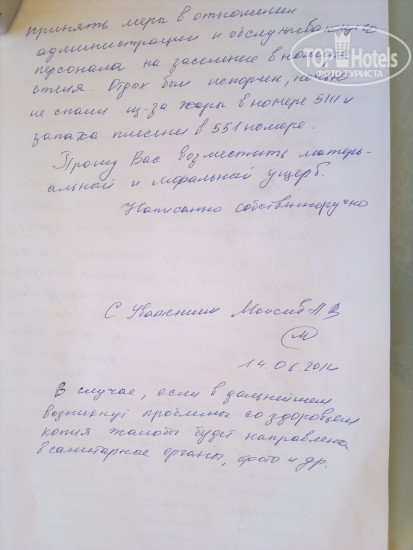 TopHotels
ФОТО ТУРИСТА
принять меры в отношении
администрации и обслуживающего
персонала на заселение в
Отдых был испорчен,
не спали из-за жары в номере 5111 и
запаха плесени в 551 номере.
Прошу Вас возместить матерь-
альный и моральный ущерб.
Написанно собственноручно
С Уважением
14.06.2012
В случае, если в дальнейшем
возникнут проблемы со здоровьем
копия жалобы будет направлена
в санитарное органы, фото и др.